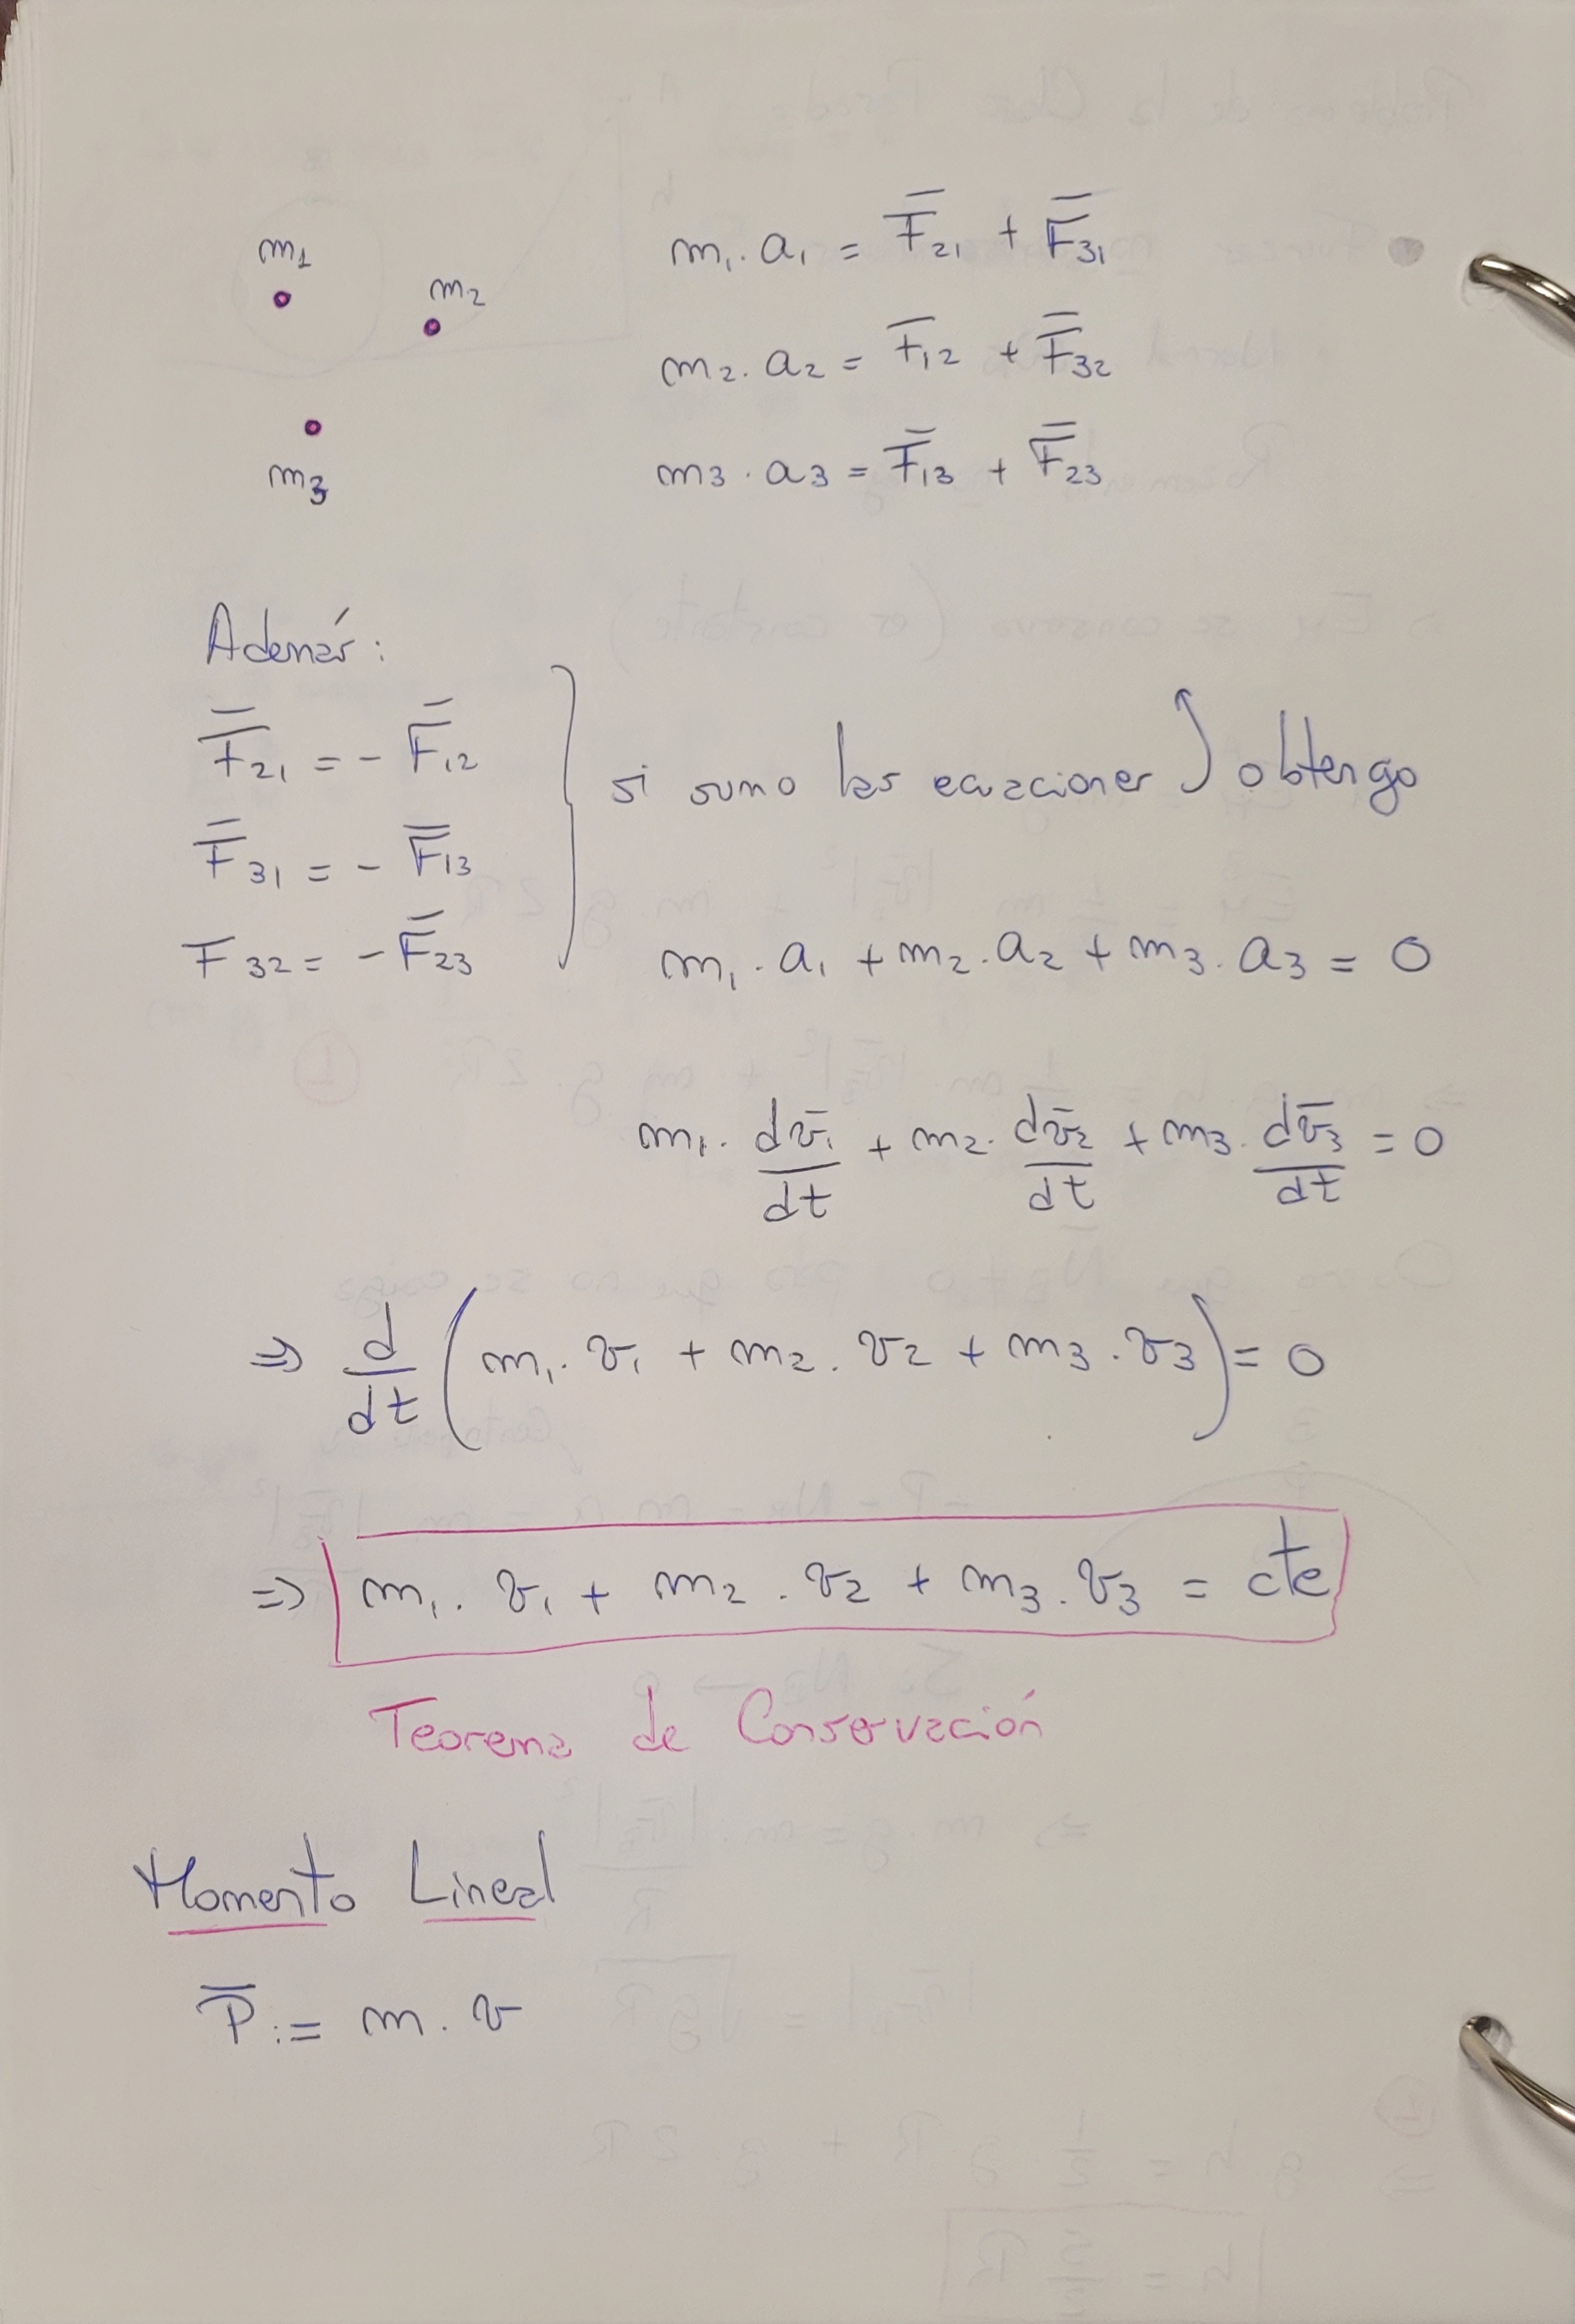 m1
m2
m3
m₁. a₁ = F̅₂₁ + F̅₃₁
m₂. a₂ = F̅₁₂ + F̅₃₂
m₃ . a₃ = F̅₁₃ + F̅₂₃
Además:
F̅₂₁ = - F̅₁₂
F̅₃₁ = - F̅₁₃
F₃₂ = - F̅₂₃
si sumo las ecuaciones } obtengo
m₁ . a₁ + m₂ . a₂ + m₃ . a₃ = 0
m₁. dv̅₁/dt + m₂. dv̅₂/dt + m₃. dv̅₃/dt = 0
⇒ d/dt (m₁. v₁ + m₂ . v₂ + m₃ . v₃) = 0
⇒ m₁. v₁ + m₂ . v₂ + m₃ . v₃ = cte
Teorema de Conservación
Momento Lineal
P̅ := m . v